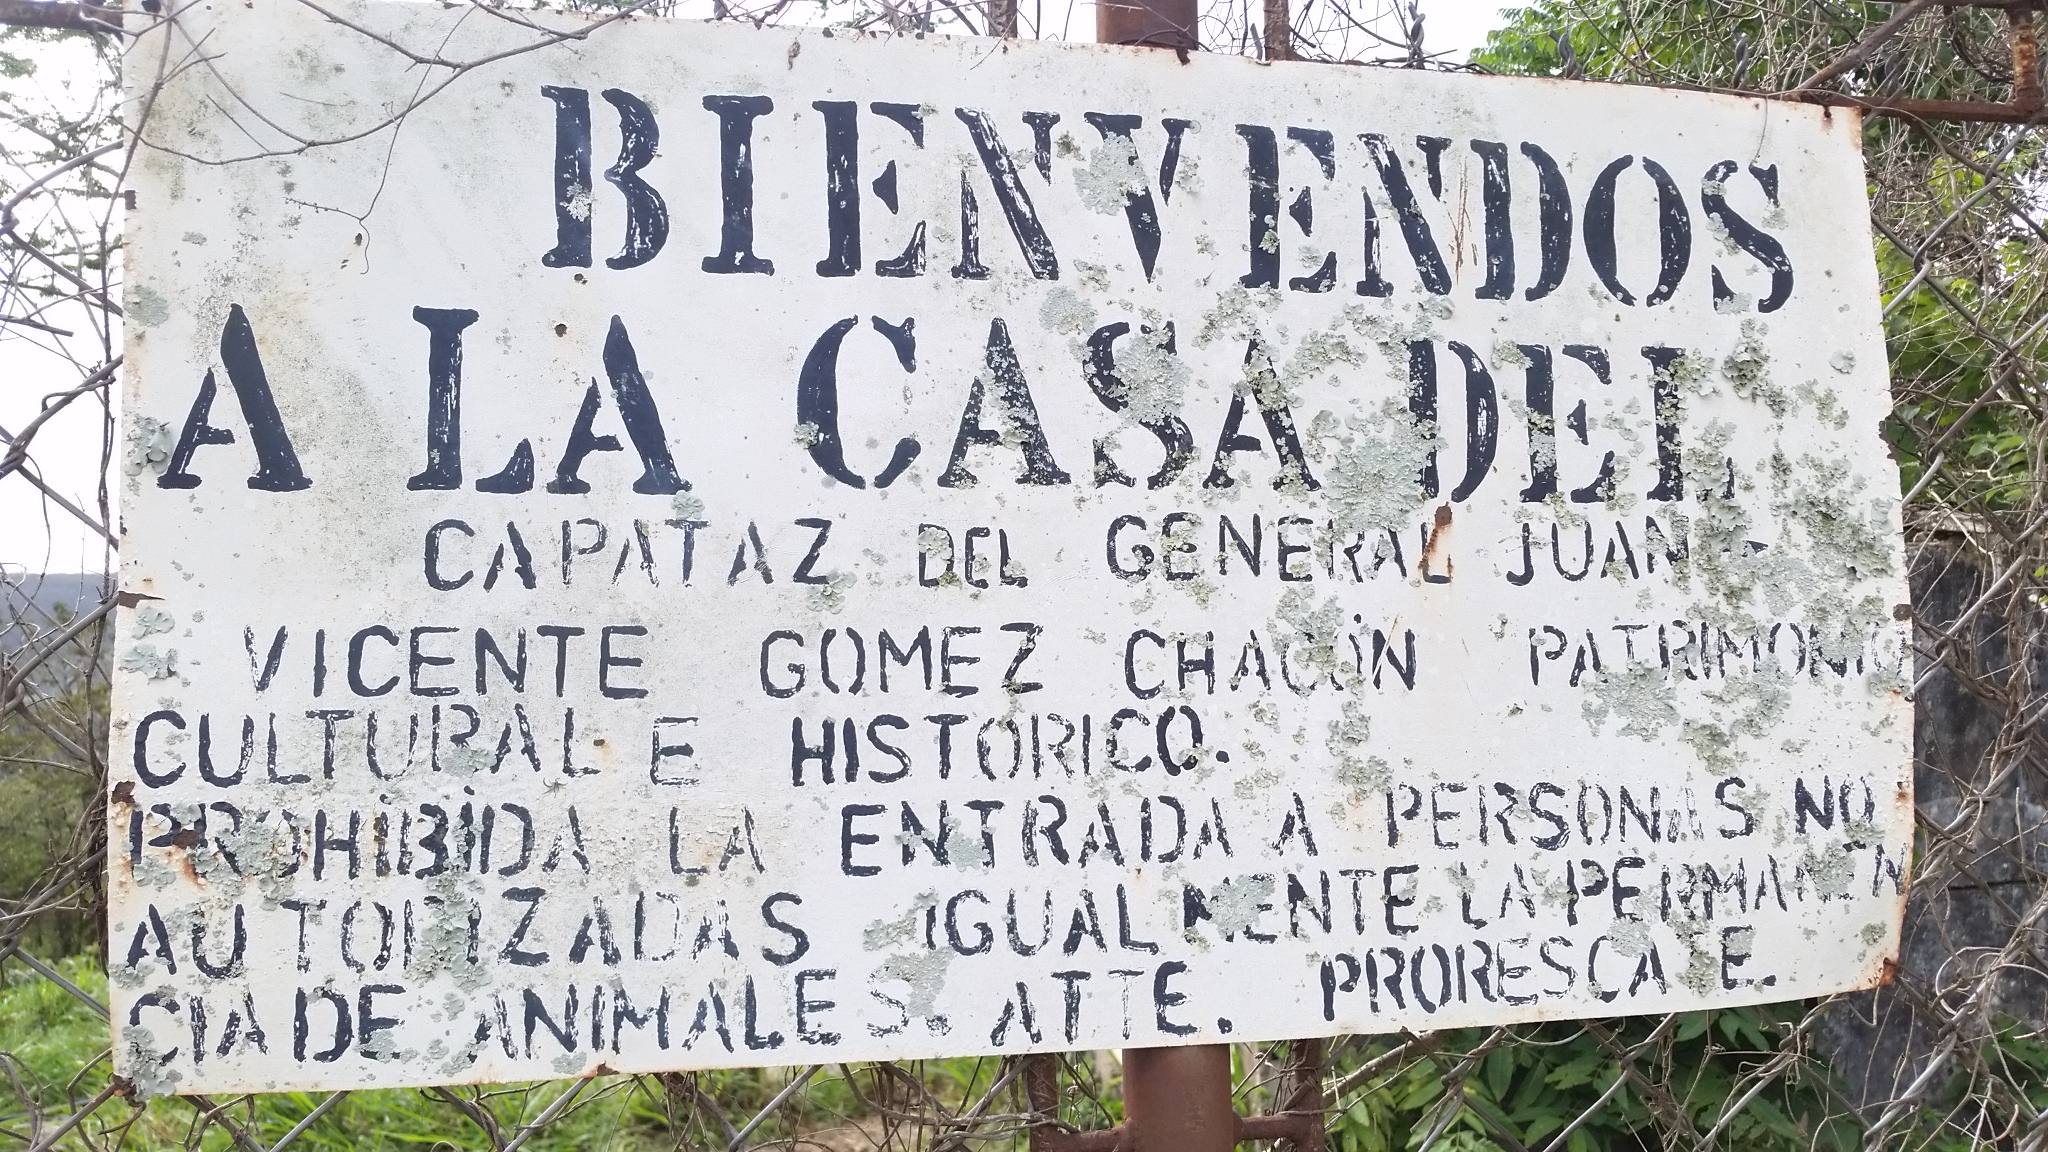 BIENVENDOS
A LA CASA DEL
CAPATAZ DEL GENERAL JUAN
VICENTE GOMEZ CHACÓN PATRIMONIO
CULTURAL E HISTÓRICO.
PROHIBIDA LA ENTRADA A PERSONAS NO
AUTORIZADAS IGUALMENTE LA PERMANEN
CIA DE ANIMALES. ATTE. PRORESCA E.